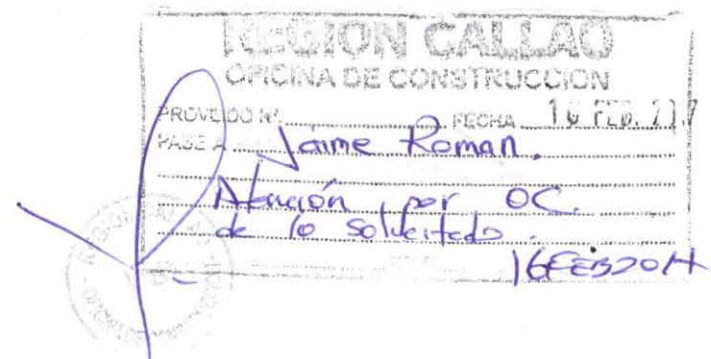 REGION CALLAO
OFICINA DE CONSTRUCCION
PROVEIDO Nº FECHA 16 FEB. 2017
PASE A Jaime Roman.
Atención por OC.
de lo solicitado.
16FEB2017